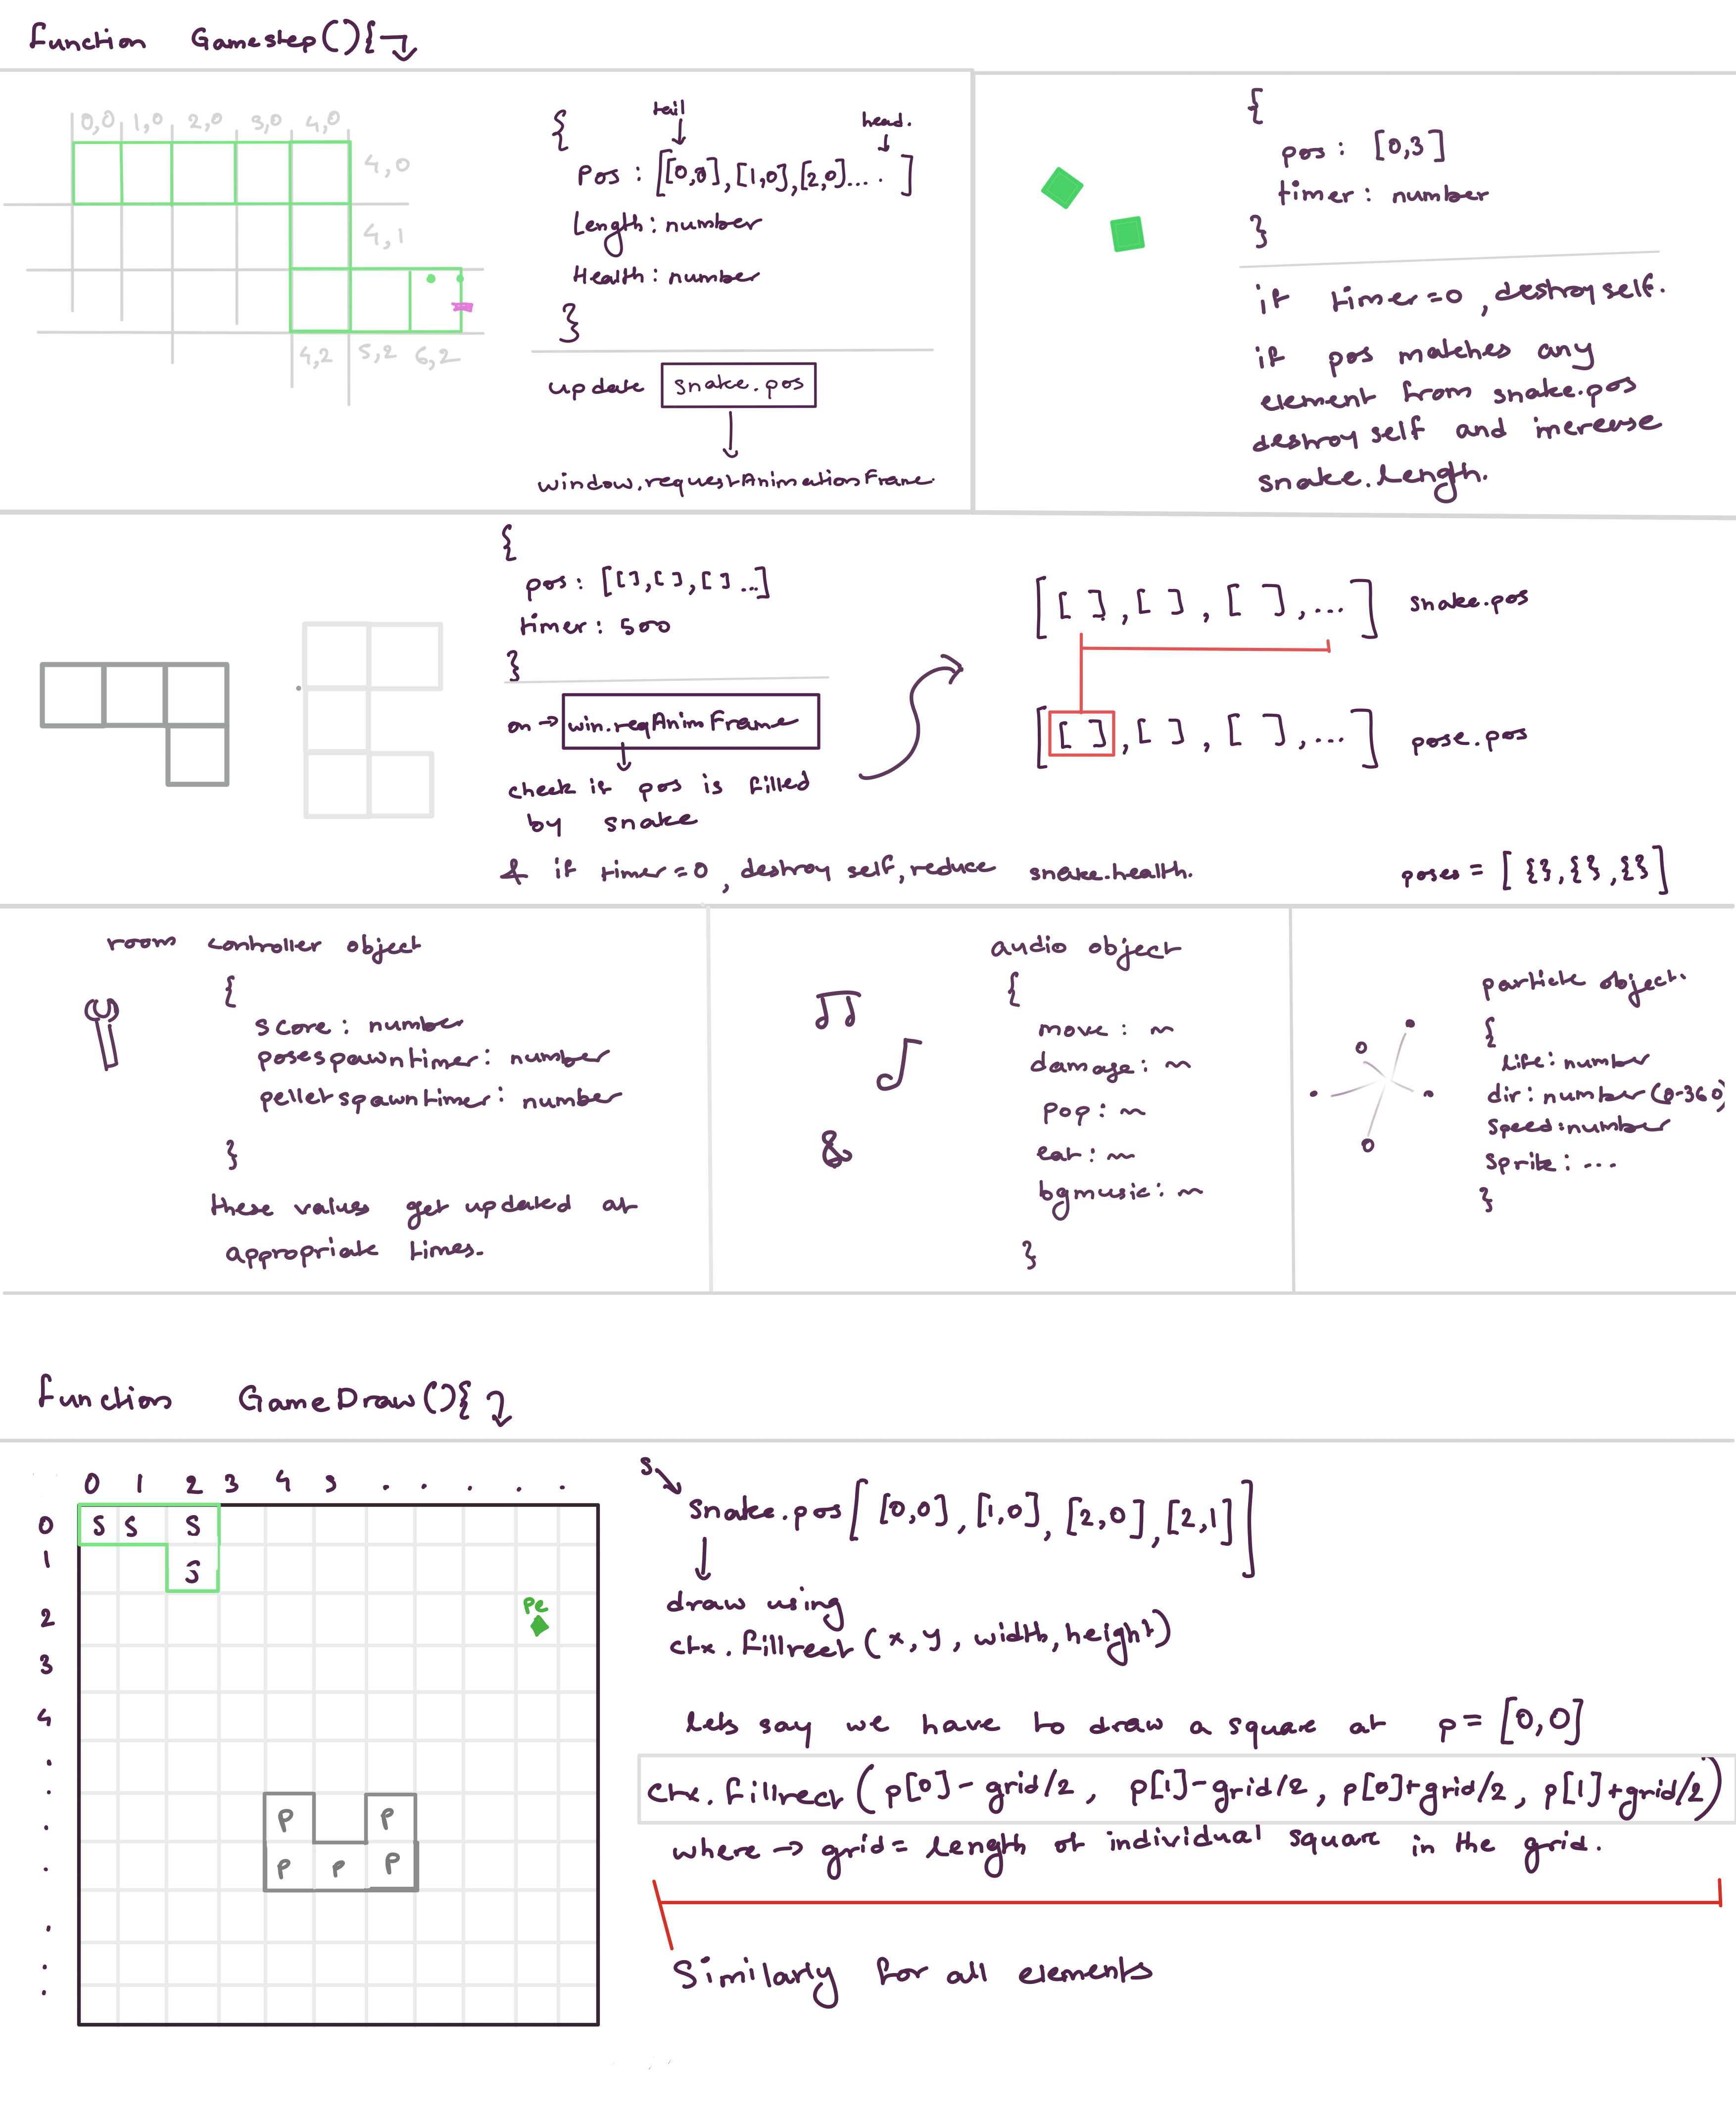 function Gamestep(){
0,0 1,0 2,0 3,0 4,0
4,0
4,1
4,2 5,2 6,2
{
tail head.
Pos : [[0,0],[1,0],[2,0].... ]
Length : number
Health : number
}
update snake.pos
window.requestAnimationFrame.
{
pos : [0,3]
timer : number
}
if timer=0, destroy self.
if pos matches any
element from snake.pos
destroy self and increase
snake.length.
{
pos : [[],[],[]...]
timer : 500
}
on → win.reqAnimFrame
check if pos is filled
by snake
& if timer=0, destroy self, reduce snake.health.
[[ ],[ ],[ ],...] snake.pos
[[ ],[ ],[ ],...] pose.pos
poses = [{},{},{}]
room controller object
{
score : number
posespawntimer : number
pelletspawntimer : number
}
these values get updated at
appropriate times.
&
audio object
{
move : ~
damage : ~
pop : ~
eat : ~
bgmusic : ~
}
particle object.
{
life : number
dir : number (0-360)
speed : number
sprite : ...
}
function GameDraw(){
0 1 2 3 4 5 . . . . .
0 S S S
1 S
2 Pe
3
4
P P
P P P
s
snake.pos[[0,0],[1,0],[2,0],[2,1]]
draw using
ctx.fillrect(x,y,width,height)
lets say we have to draw a square at p = [0,0]
ctx.fillrect(p[0]-grid/2, p[1]-grid/2, p[0]+grid/2, p[1]+grid/2)
where → grid = length of individual square in the grid.
Similarly for all elements